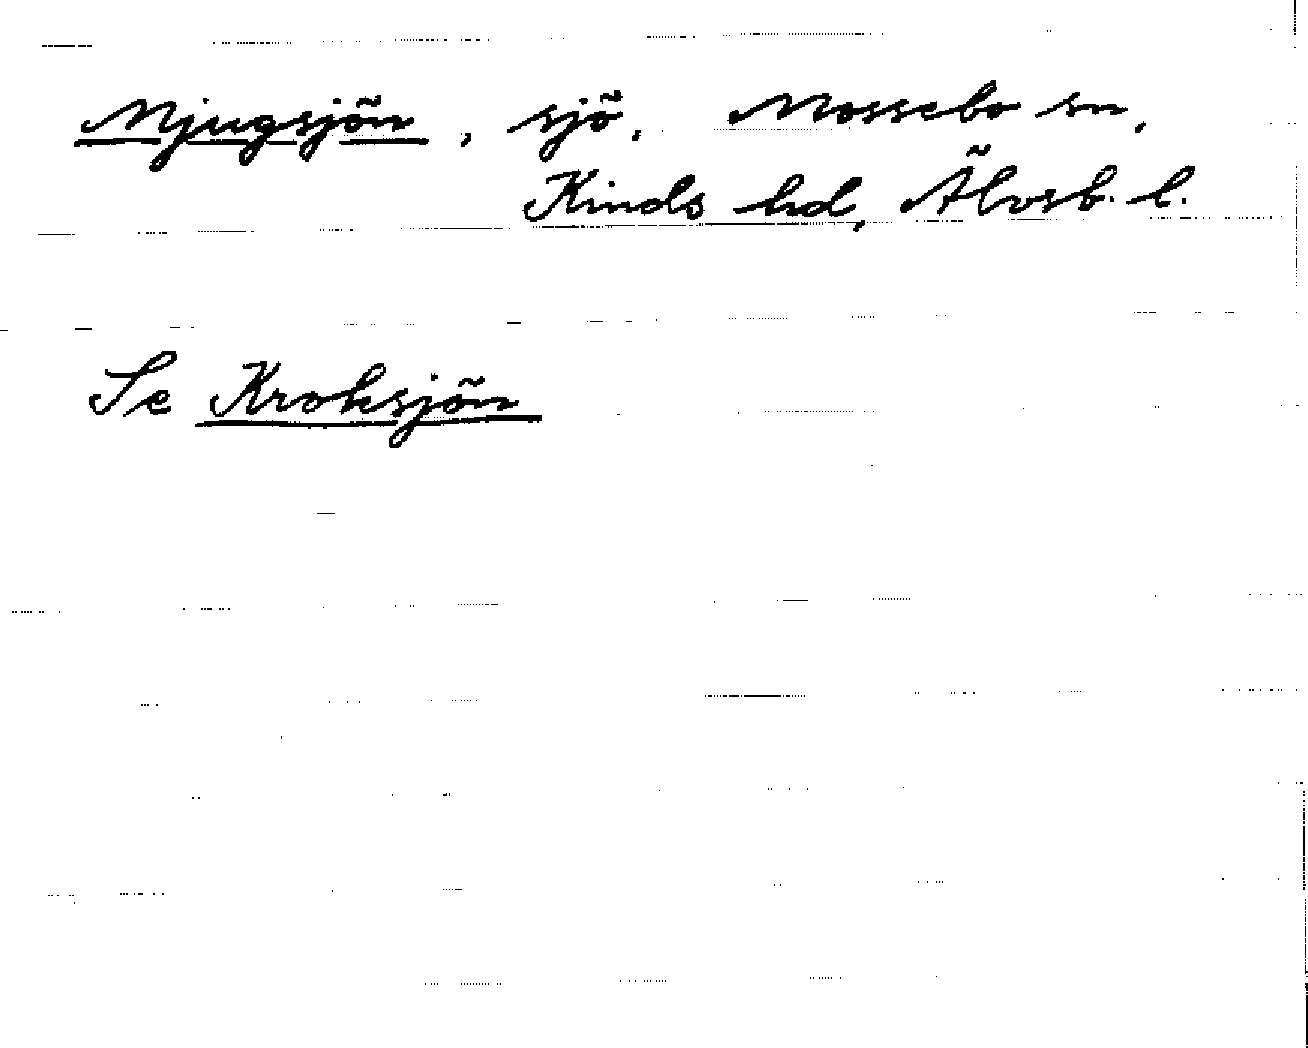 Mjugsjön, sjö, Mossebo sn,
Kinds hd, Älvsb. l.
Se Kroksjön